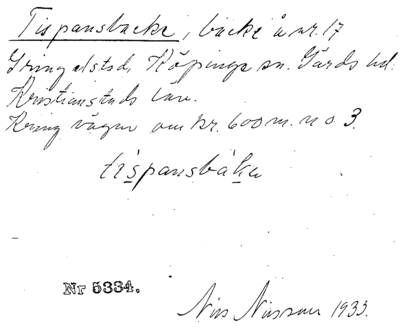 Tispansbacke, backe å nr. 17
Gringelstad, Köpinge sn. Gärds hd.
Kristianstads län.
Kring vägen om kr. 600 m. n o 3.
tispansbáka
Nr 5334.
Nils Nilsson 1933.